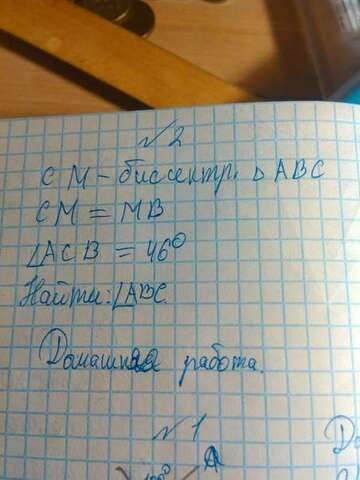 №2
CM - биссектр. △ABC
CM = MB
∠ACB = 46°
Найти: ∠ABC.
Домашняя работа.
№1
100° A